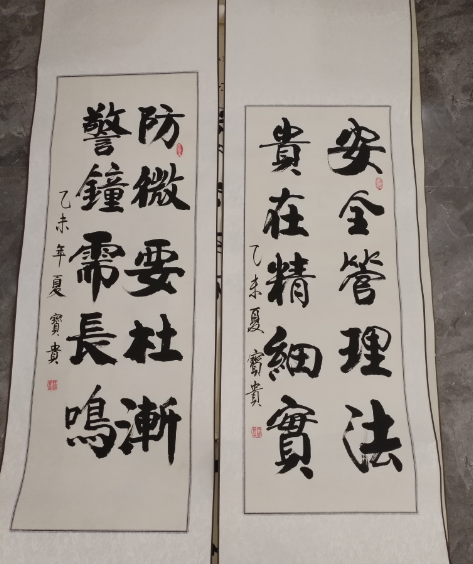 安全管理法
貴在精細實
乙未夏 寳貴
防微要杜漸
警鐘需長鳴
乙未年夏 寳貴